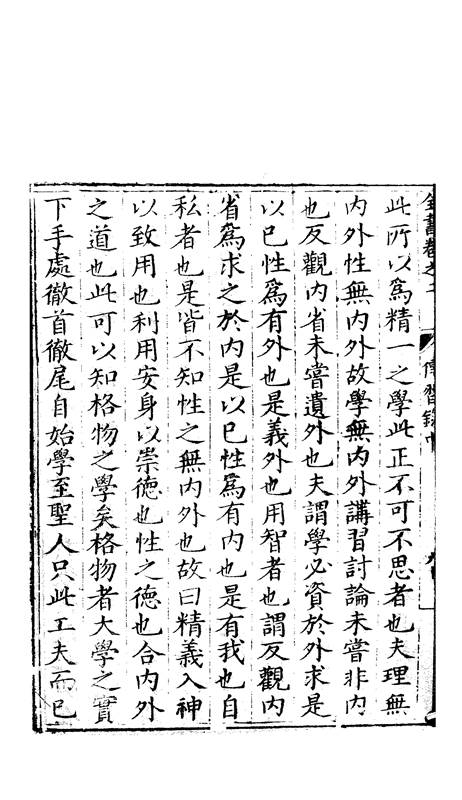 全書卷之二　傳習錄中
此所以爲精一之學此正不可不思者也夫理無
内外性無内外故學無内外講習討論未嘗非内
也反觀内省未嘗遺外也夫謂學必資於外求是
以已性爲有外也是義外也用智者也謂反觀内
省爲求之於内是以已性爲有内也是有我也自
私者也是皆不知性之無内外也故曰精義入神
以致用也利用安身以崇德也性之德也合内外
之道也此可以知格物之學矣格物者大學之實
下手處徹首徹尾自始學至聖人只此工夫而已